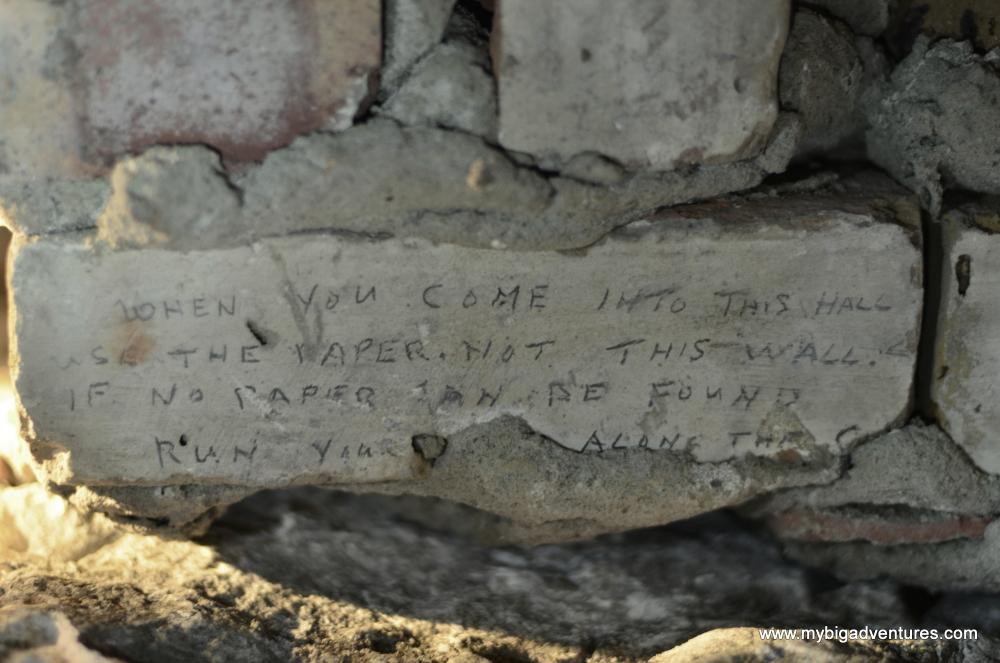 WHEN YOU COME INTO THIS HALL
USE THE PAPER. NOT THIS WALL.
IF NO PAPER CAN BE FOUND
RUN YOU ALONG THE
www.mybigadventures.com